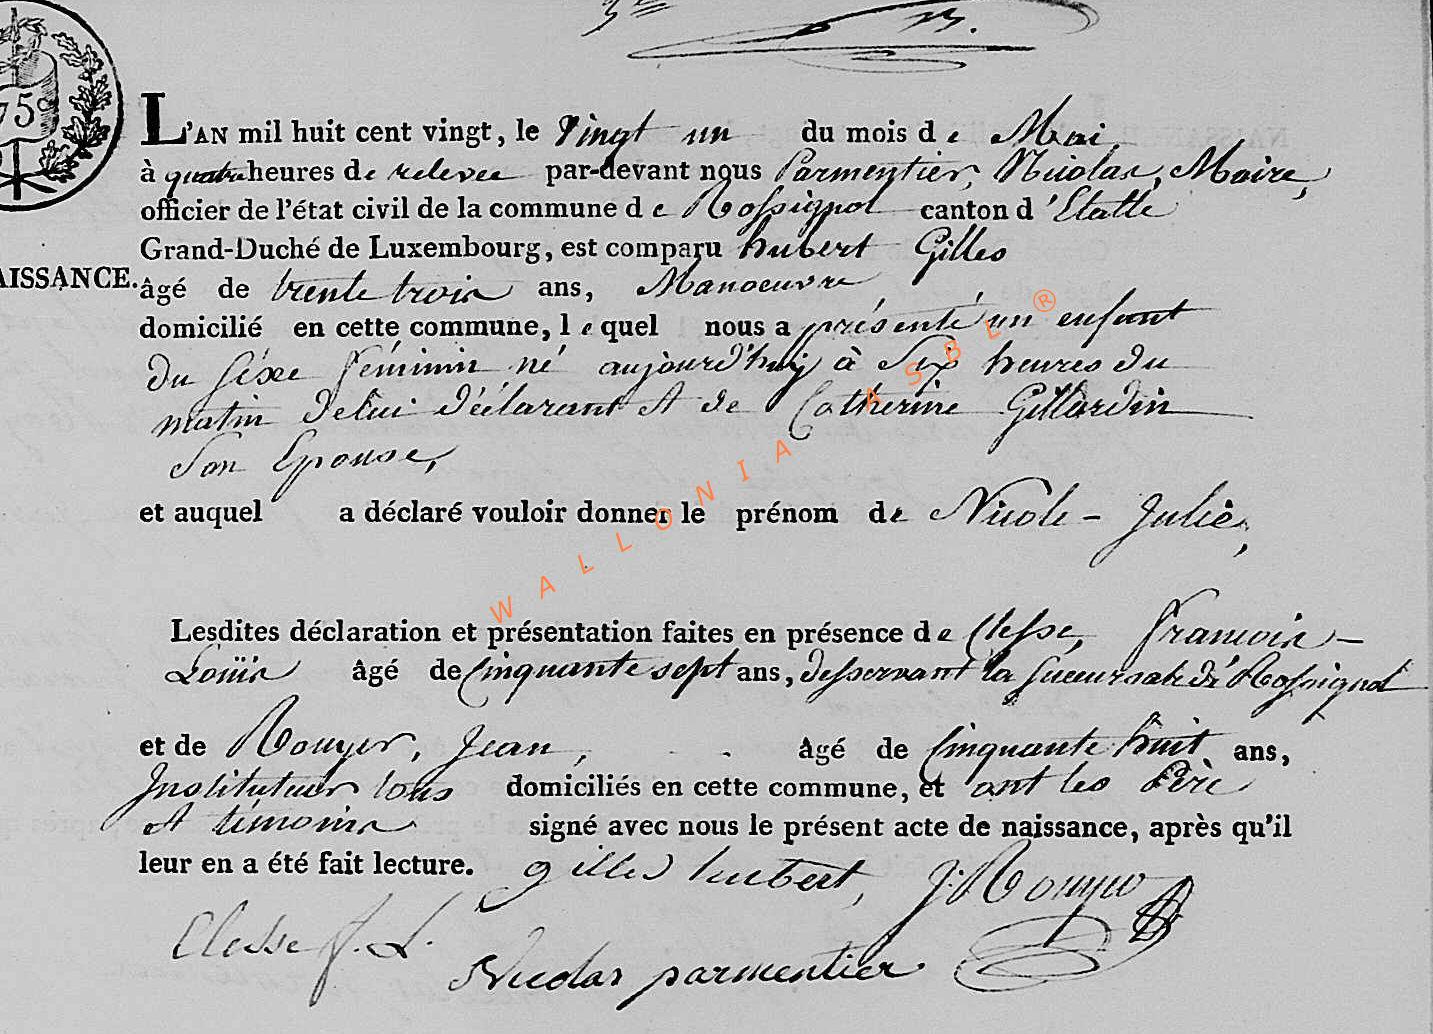 75 c
L'AN mil huit cent vingt, le Vingt un du mois de Mai
à quatre heures de relevee par-devant nous Parmentier, Nicolas, Maire,
officier de l'état civil de la commune de Rossignol canton d'Etalle
Grand-Duché de Luxembourg, est comparu hubert Gilles
AISSANCE.
âgé de trente trois ans, Manoeuvre
domicilié en cette commune, lequel nous a présenté un enfant
du séxe féminin né aujourd'huy à Six heures du
matin de lui déclarant et de Catherine Gillardin
Son Epouse,
et auquel a déclaré vouloir donner le prénom de Nicole - Julie,
Lesdites déclaration et présentation faites en présence de Clesse, Francois -
Louïs âgé de Cinquante sept ans, desservant la succursale de Rossignol
et de Rouyer, Jean, âgé de Cinquante huit ans,
Instituteur tous domiciliés en cette commune, et ont les Père
et témoins signé avec nous le présent acte de naissance, après qu'il
leur en a été fait lecture. gilles hubert, J: Rouyer
Clesse f. L.
Nicolas parmentier
WALLONIA ASBL ®